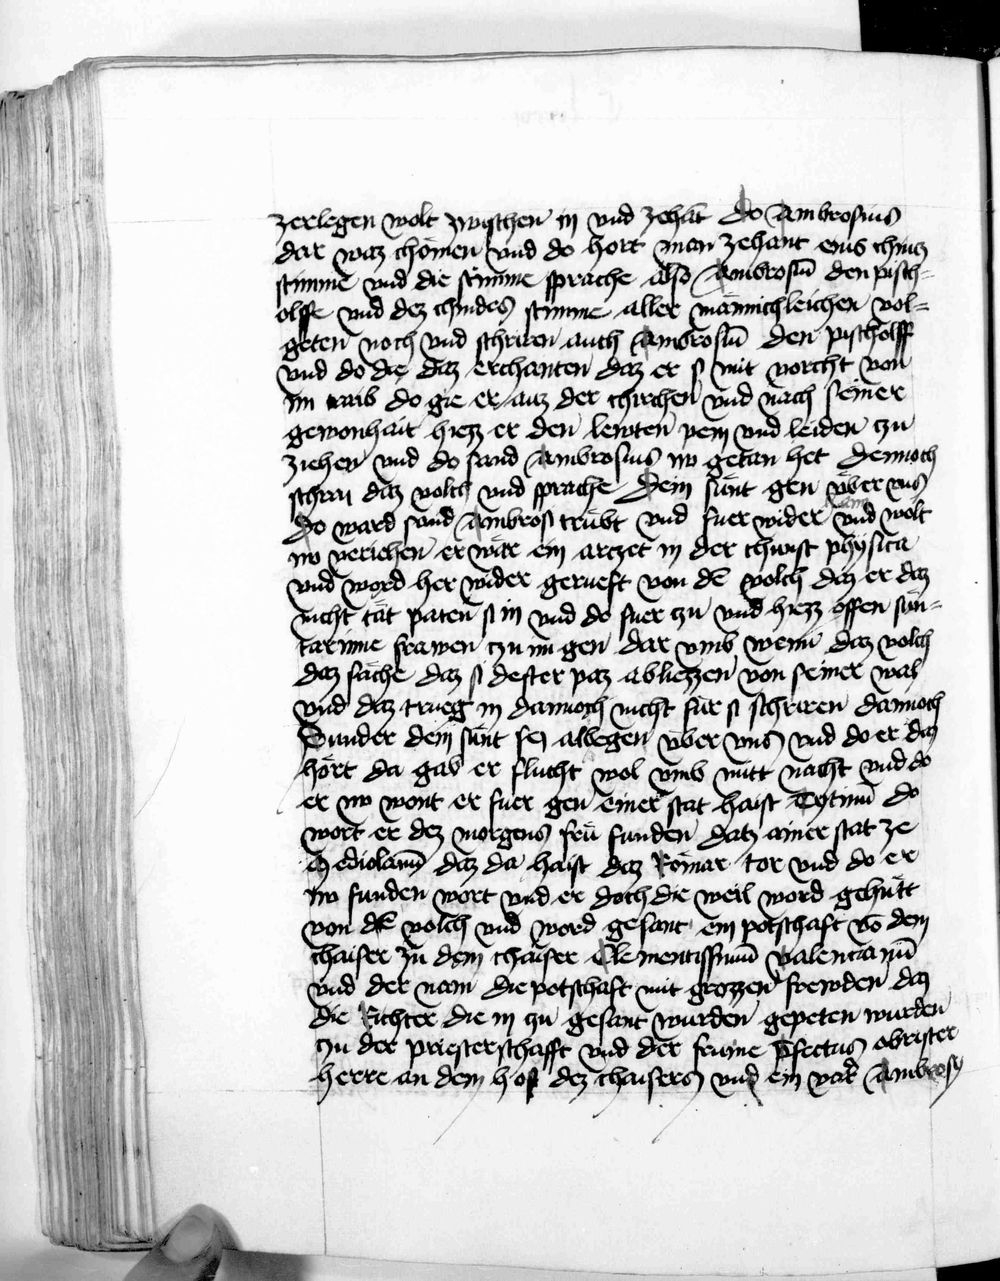 zerlegen wolt zwischen in vnd zehāt do Ambrosius
dar waz chömen vnd do hort man zehant eins chindz
stimme vnd die stimme sprache also Ambrosiū den pisch=
olffe vnd dez chindes stimme aller männichleichen vol=
geten noch vnd schriren auch Ambrosiū den pischolff
vnd do die daz erchanten daz er si mit vorcht von
im traib do gie er auz der chirchen vnd nach seiner
gewonhait hiezz er den lewten pein vnd leiden czu
ziehen vnd do sand Ambrosius no getan het dennoch
schrai daz volch vnd sprache dein sünt gen über uns
do ward sand Ambrosi trübt vnd fuer wider haim vnd wolt
no veriehen er wär ein arczet in der chunst physica
vnd word her wider gerueft von dē volch daz er daz
nicht tät paten si in vnd do fuer czu vnd hiezz offen sün=
tarinne frawen czu im gen dar vmb wenn daz volch
daz sache daz si dester paz abliezzen von seiner wal
vnd daz trueg in dannoch nicht für si schriren dannoch
Sunder dein sünt sey albegen über vns vnd do er daz
hört da gab er flucht wol vmb mitt nacht vnd do
er no wont er fuer gen einer stat haist Tytinū do
wort er dez morgens frü funden datz ainer stat ze
Mediolanū daz da haist daz Römar tor vnd do er
no funden wort vnd er doch die weil word gehütt
von dē volch vnd word gesant ein potschaft vō dem
chaiser zu dem chaiser Clementissimū valencianū
vnd der nam die potschaft mit grozzen frewden daz
die Richter die in czu gesant wurden gepeten wurden
czu der priesterschafft vnd der frume p̄fectus obrister
herre an dem hof dez chaisers vnd ein var̄ Ambrosy